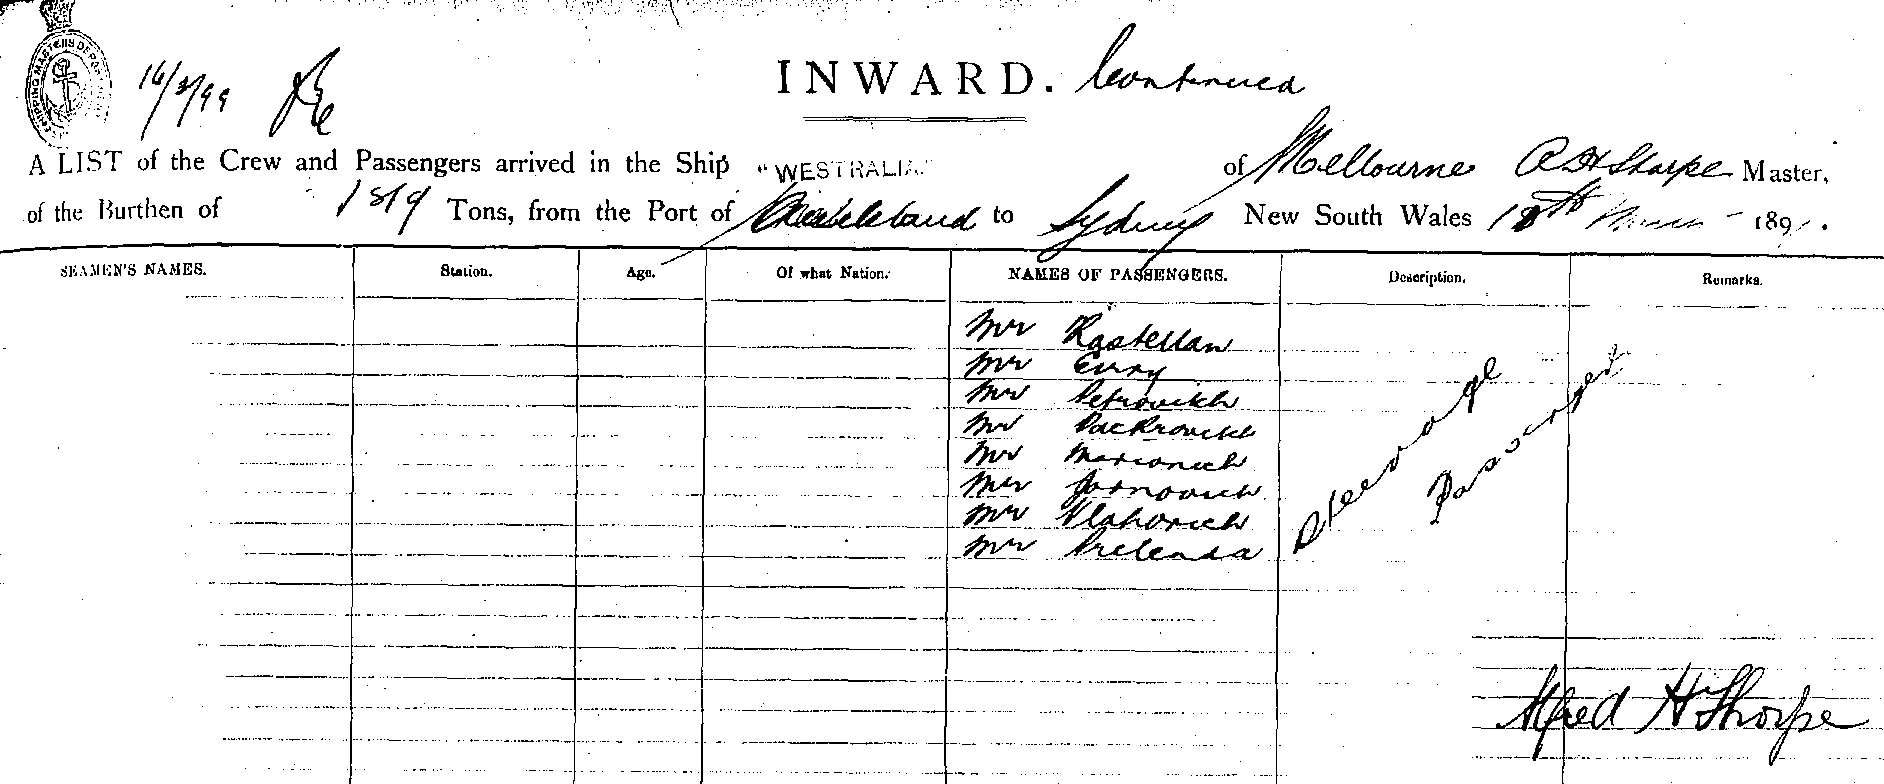 SHIPPING MASTERS DEPARTMENT
16/3/99
INWARD. Continued
A LIST of the Crew and Passengers arrived in the Ship "WESTRALIA" of Melbourne A H Sharpe Master,
of the Burthen of 1819 Tons, from the Port of Auckland to Sydney New South Wales 189 .
SEAMEN'S NAMES. Station. Age. Of what Nation. NAMES OF PASSENGERS. Description. Remarks.
Mr Rastellan
Mr
Mr Petrovich
Mr Packrovich
Mr Marconich
Mr Jarnovich
Mr Vlahovich
Mr Prelenda
Steerage
Passenger
Alfred H Sharpe